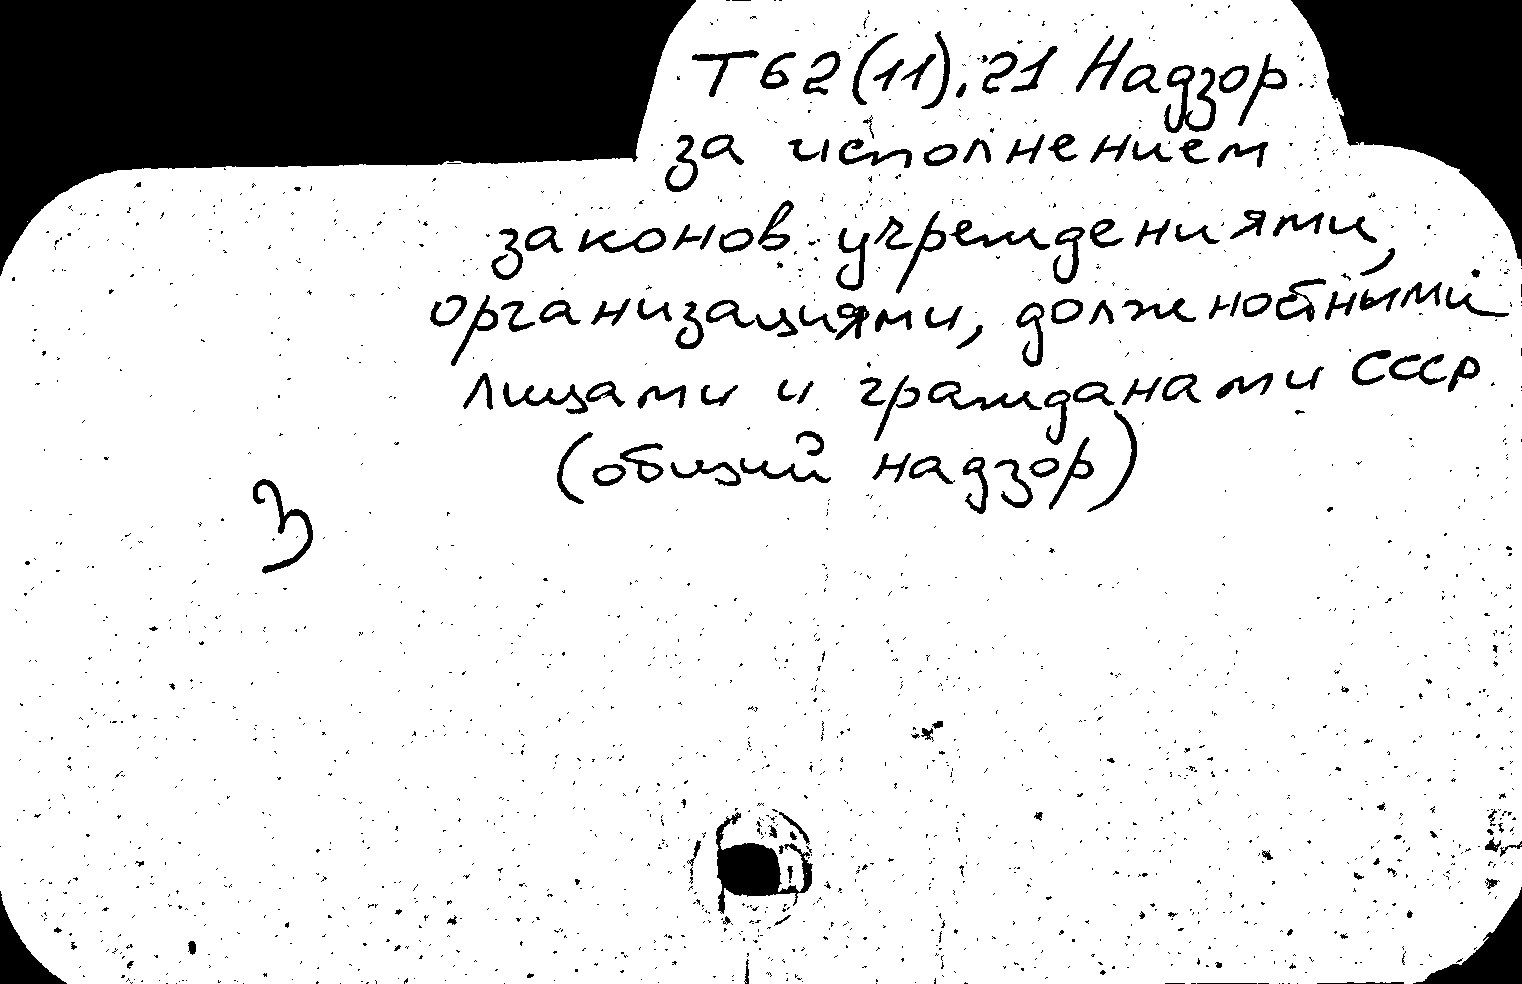 Т62(11).21 Надзор
за исполнением
законов учреждениями,
организациями, должностными
лицами и гражданами СССР
(общий надзор)
З